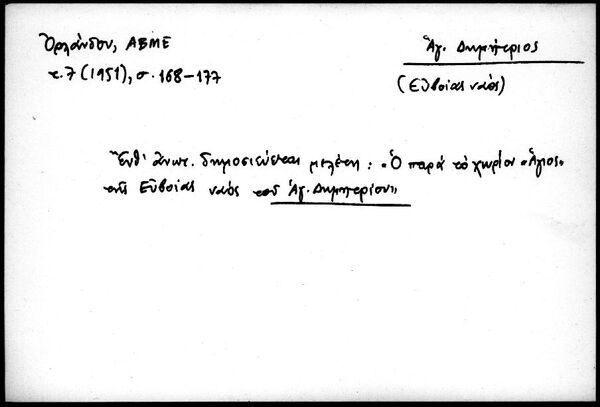 Ὀρλάνδου, ΑΒΜΕ
τ. 7 (1951), σ. 168-177
Ἅγ. Δημήτριος
(Εὐβοίας ναός)
Ἔνθ' ἀνωτ. δημοσιεύεται μελέτη: «Ὁ παρὰ τὸ χωρίον «Ἅγιος»
τῆς Εὐβοίας ναὸς τοῦ Ἁγ. Δημητρίου»